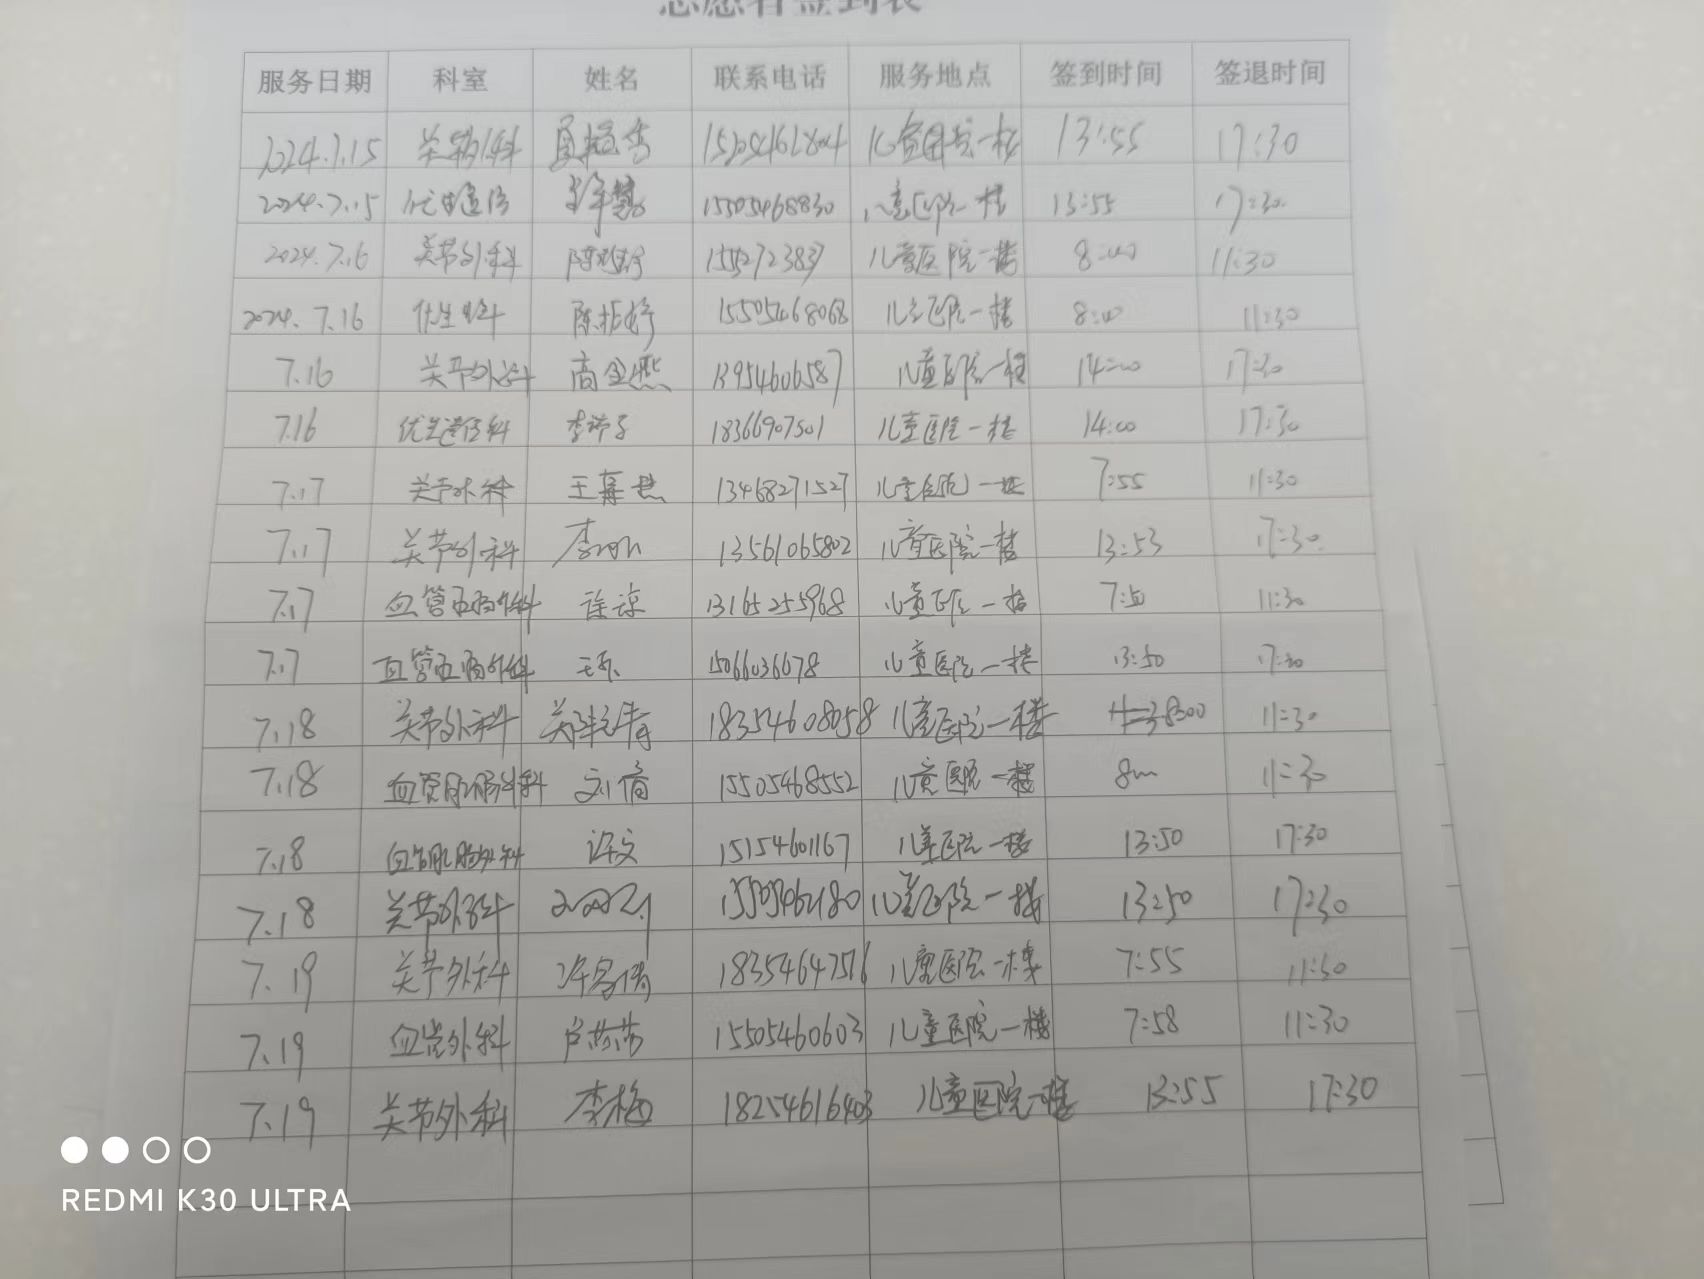 志愿者签到表
服务日期 科室 姓名 联系电话 服务地点 签到时间 签退时间
2024.7.15 13:55 17:30
2024.7.15 15505468830 儿童医院一楼 13:55 17:30
2024.7.16 关节外科 1552723837 儿童医院一楼 8:00 11:30
2024.7.16 15505468068 儿童医院一楼 8:00 11:30
7.16 关节外科 高全燕 13954606587 儿童医院一楼 14:00 17:30
7.16 优生遗传科 18366907501 儿童医院一楼 14:00 17:30
7.17 关节外科 13468271527 儿童医院一楼 7:55 11:30
7.17 关节外科 13561065802 儿童医院一楼 13:53 17:30
7.17 13165255968 儿童医院一楼 7:50 11:30
7.17 15066036678 儿童医院一楼 13:50 17:30
7.18 关节外科 18354608058 儿童医院一楼 11:30
7.18 刘倩 15505468552 儿童医院一楼 11:30
7.18 许文 15154601167 儿童医院一楼 13:50 17:30
7.18 关节外科 儿童医院一楼 13:50 17:30
7.19 关节外科 儿童医院一楼 7:55 11:30
7.19 血管外科 卢莎莎 15505460603 儿童医院一楼 7:58 11:30
7.19 关节外科 李梅 18254616403 儿童医院一楼 13:55 17:30
REDMI K30 ULTRA